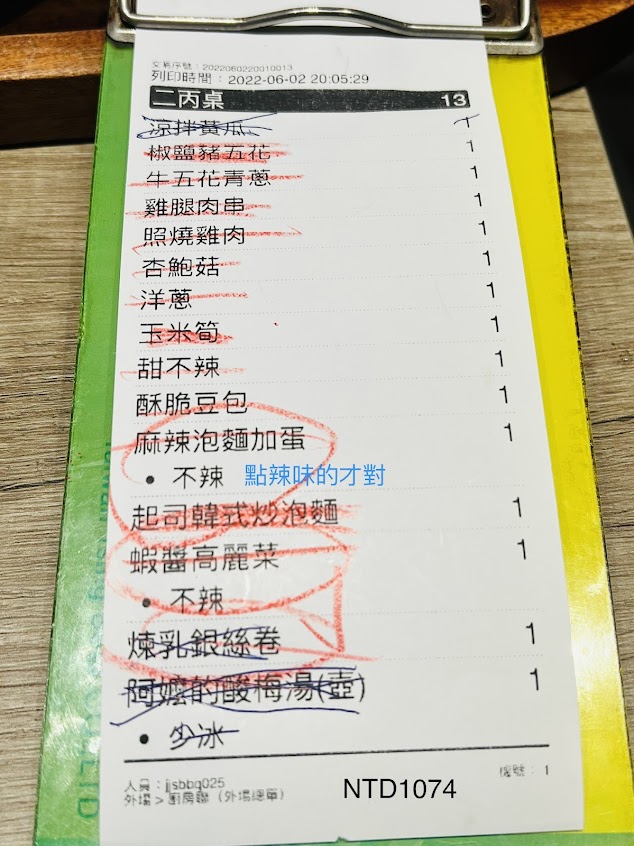 交易序號：2022060220010013
列印時間：2022-06-02 20:05:29
二丙桌 13
涼拌黃瓜 1
椒鹽豬五花 1
牛五花青蔥 1
雞腿肉串 1
照燒雞肉 1
杏鮑菇 1
洋蔥 1
玉米筍 1
甜不辣 1
酥脆豆包 1
麻辣泡麵加蛋 1
• 不辣 點辣味的才對
起司韓式炒泡麵 1
蝦醬高麗菜 1
• 不辣
煉乳銀絲卷 1
阿嬤的酸梅湯(壺) 1
• 少冰
人員：jjsbbq025 機號：1
外場 > 廚房聯 (外場總單)
NTD1074